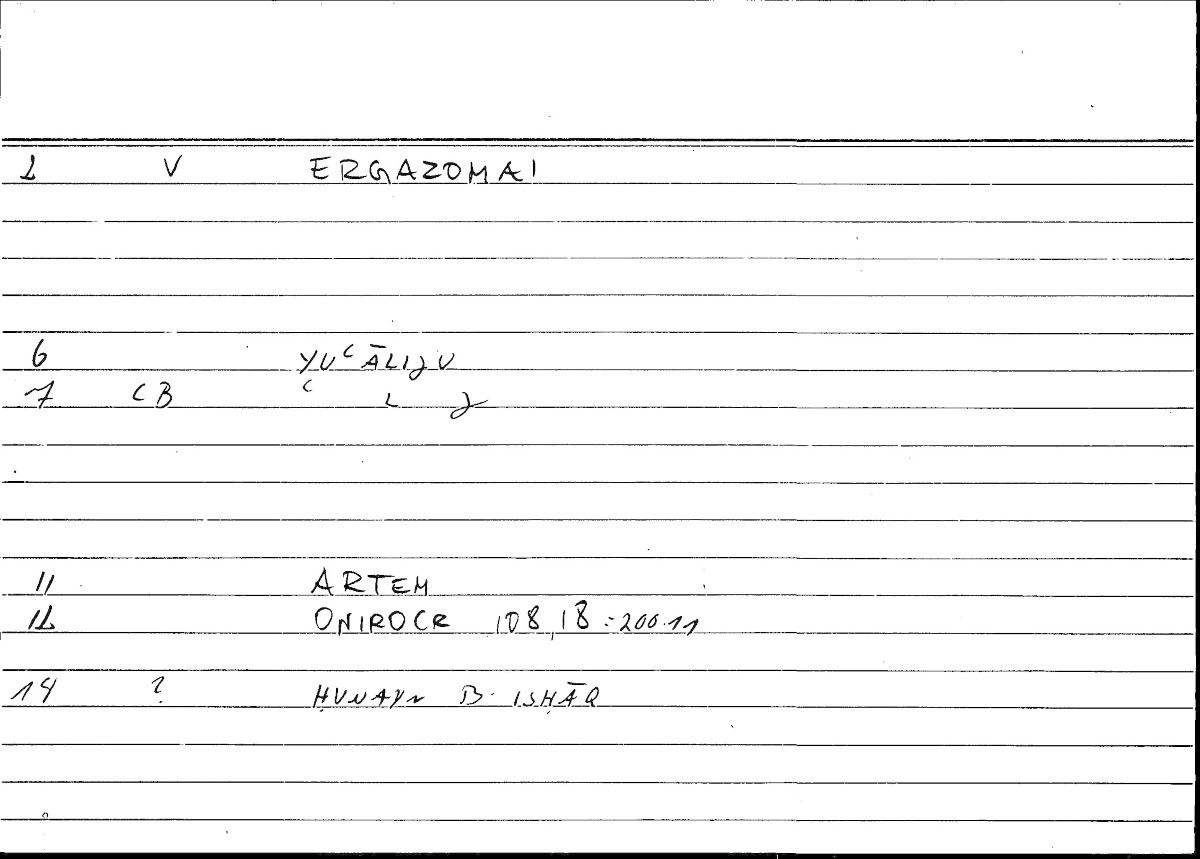 1 V ERGAZOMAI
6 YUʿĀLIJU
7 CB ʿ L J
11 ARTEM
12 ONIROCR 108,18 = 200.11
14 ? ḤUNAYN B. ISḤĀQ